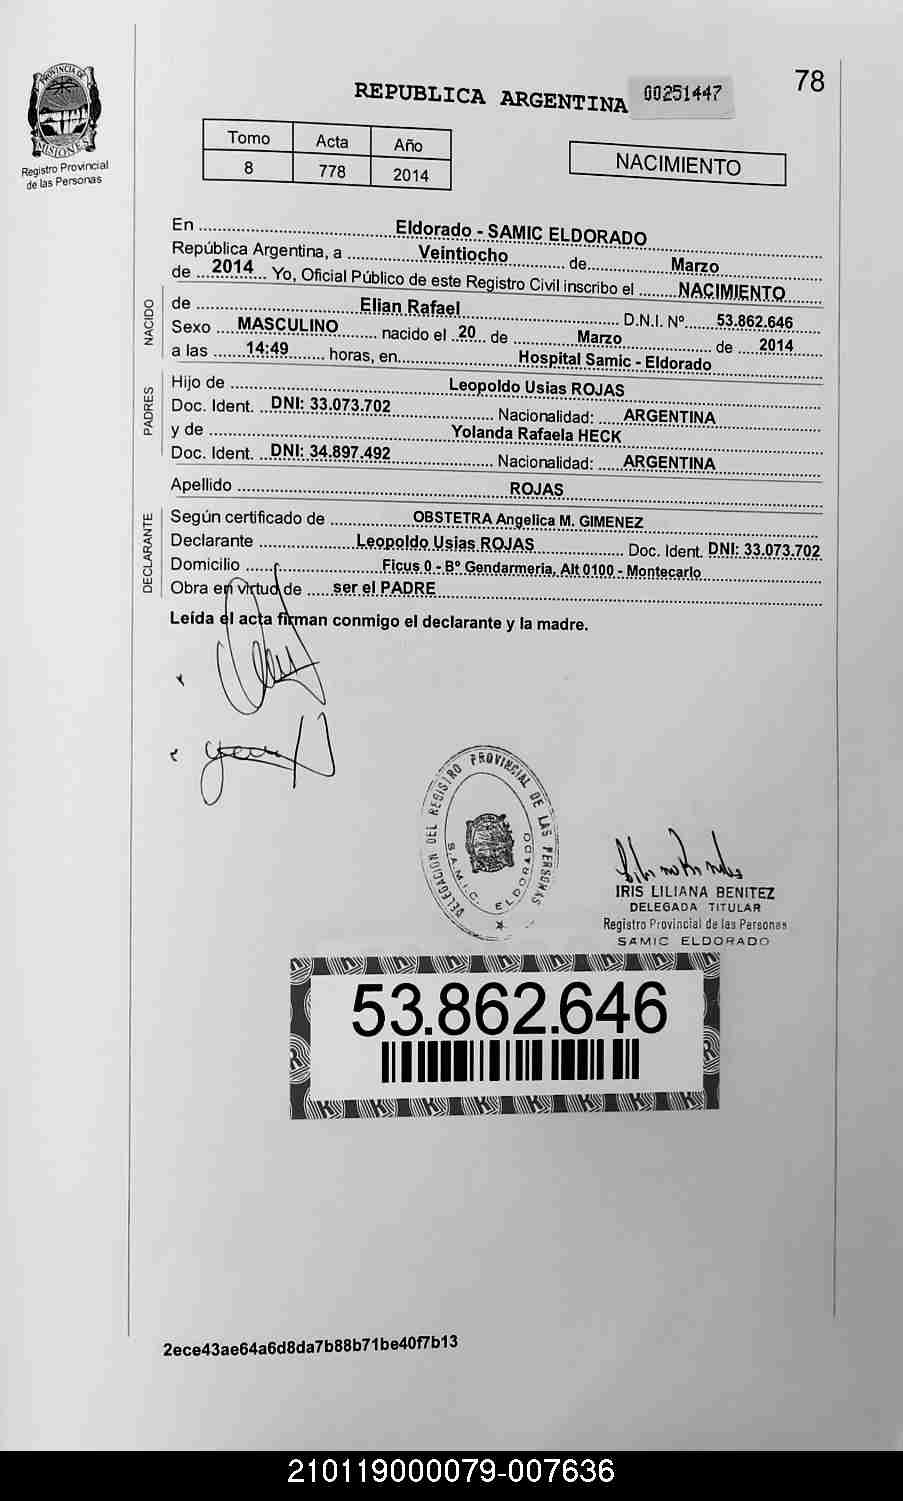 PROVINCIA DE
MISIONES
Registro Provincial
de las Personas
REPUBLICA ARGENTINA
00251447
78
Tomo Acta Año
8 778 2014
NACIMIENTO
En Eldorado - SAMIC ELDORADO
República Argentina, a Veintiocho de Marzo
de 2014 Yo, Oficial Público de este Registro Civil inscribo el NACIMIENTO
NACIDO
de Elian Rafael D.N.I. Nº 53.862.646
Sexo MASCULINO nacido el 20 de Marzo de 2014
a las 14:49 horas, en Hospital Samic - Eldorado
PADRES
Hijo de Leopoldo Usias ROJAS
Doc. Ident. DNI: 33.073.702 Nacionalidad: ARGENTINA
y de Yolanda Rafaela HECK
Doc. Ident. DNI: 34.897.492 Nacionalidad: ARGENTINA
Apellido ROJAS
DECLARANTE
Según certificado de OBSTETRA Angelica M. GIMENEZ
Declarante Leopoldo Usias ROJAS Doc. Ident. DNI: 33.073.702
Domicilio Ficus 0 - Bº Gendarmeria, Alt 0100 - Montecarlo
Obra en virtud de ser el PADRE
Leída el acta firman conmigo el declarante y la madre.
DELEGACION DEL REGISTRO PROVINCIAL DE LAS PERSONAS
S.A.M.I.C. ELDORADO
IRIS LILIANA BENITEZ
DELEGADA TITULAR
Registro Provincial de las Personas
SAMIC ELDORADO
53.862.646
2ece43ae64a6d8da7b88b71be40f7b13
210119000079-007636